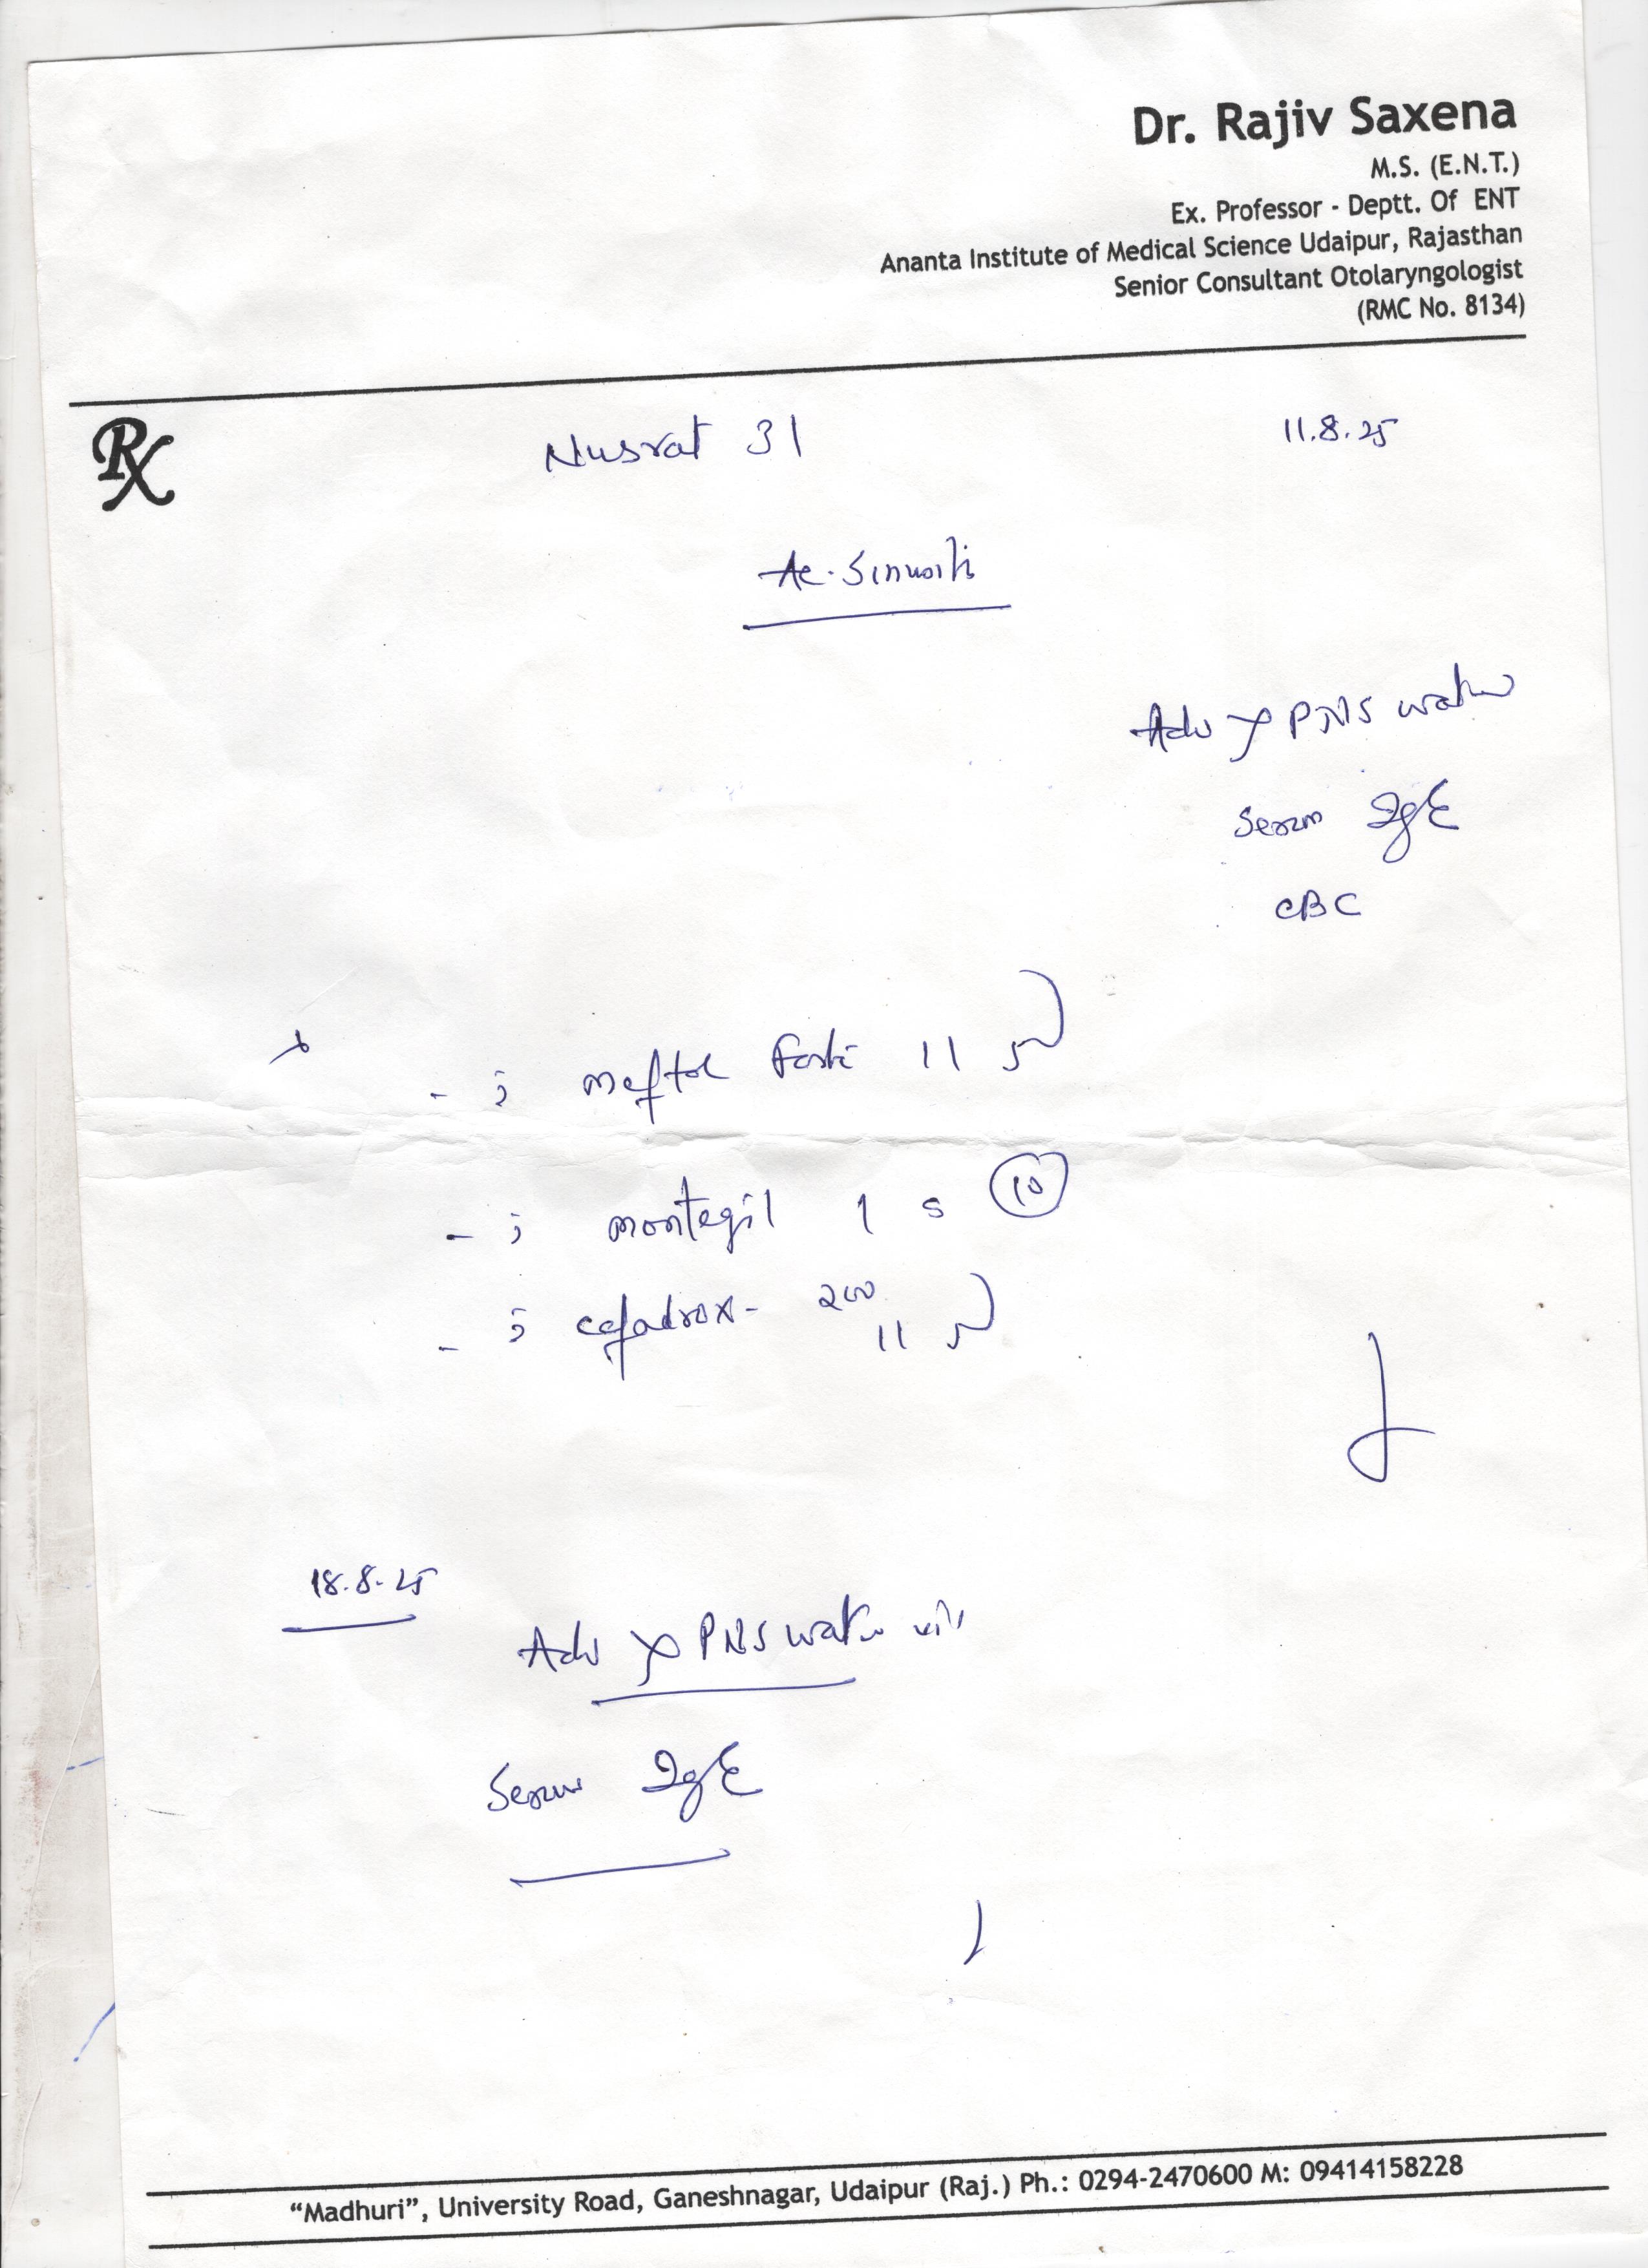 Dr. Rajiv Saxena
M.S. (E.N.T.)
Ex. Professor - Deptt. Of ENT
Ananta Institute of Medical Science Udaipur, Rajasthan
Senior Consultant Otolaryngologist
(RMC No. 8134)
Rx
Nusrat 31 11.8.25
Ac. Sinusitis
Adv X PNS water
Serum IgE
CBC
- meftal forte 11 5
- 1 s 10
- 200
11 5
18.8.25
Adv X PNS water
Serum IgE
“Madhuri”, University Road, Ganeshnagar, Udaipur (Raj.) Ph.: 0294-2470600 M: 09414158228